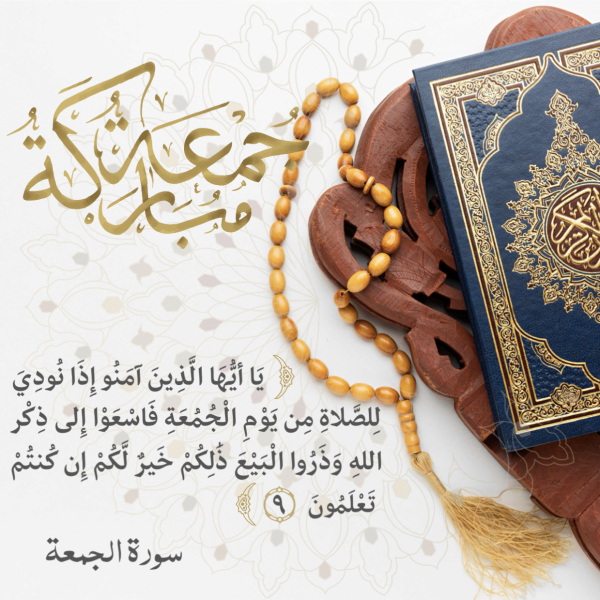 جُمُعَةٌ
مُبَارَكَةٌ
يَا أَيُّهَا الَّذِينَ آمَنُو إِذَا نُودِيَ
لِلصَّلاةِ مِن يَوْمِ الْجُمُعَة فَاسْعَوْا إِلى ذِكْر
اللهِ وَذَرُوا الْبَيْعَ ذَٰلِكُمْ خَيرٌ لَّكُمْ إِن كُنتُمْ
تَعْلَمُونَ ٩
سورة الجمعة